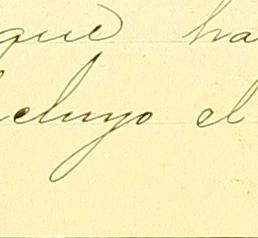 que ha
cluyo el